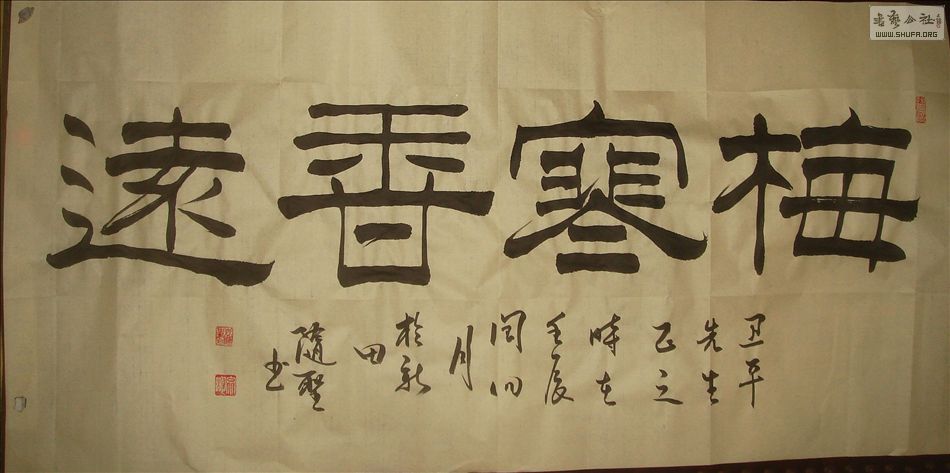 梅寒香遠
卫平
先生
正之
時在
壬辰
閏四
月
於新
田
隨聖
书
書藝公社
WWW.SHUFA.ORG